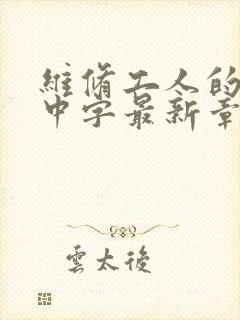 維脩工人的
中字最新章
雲太後